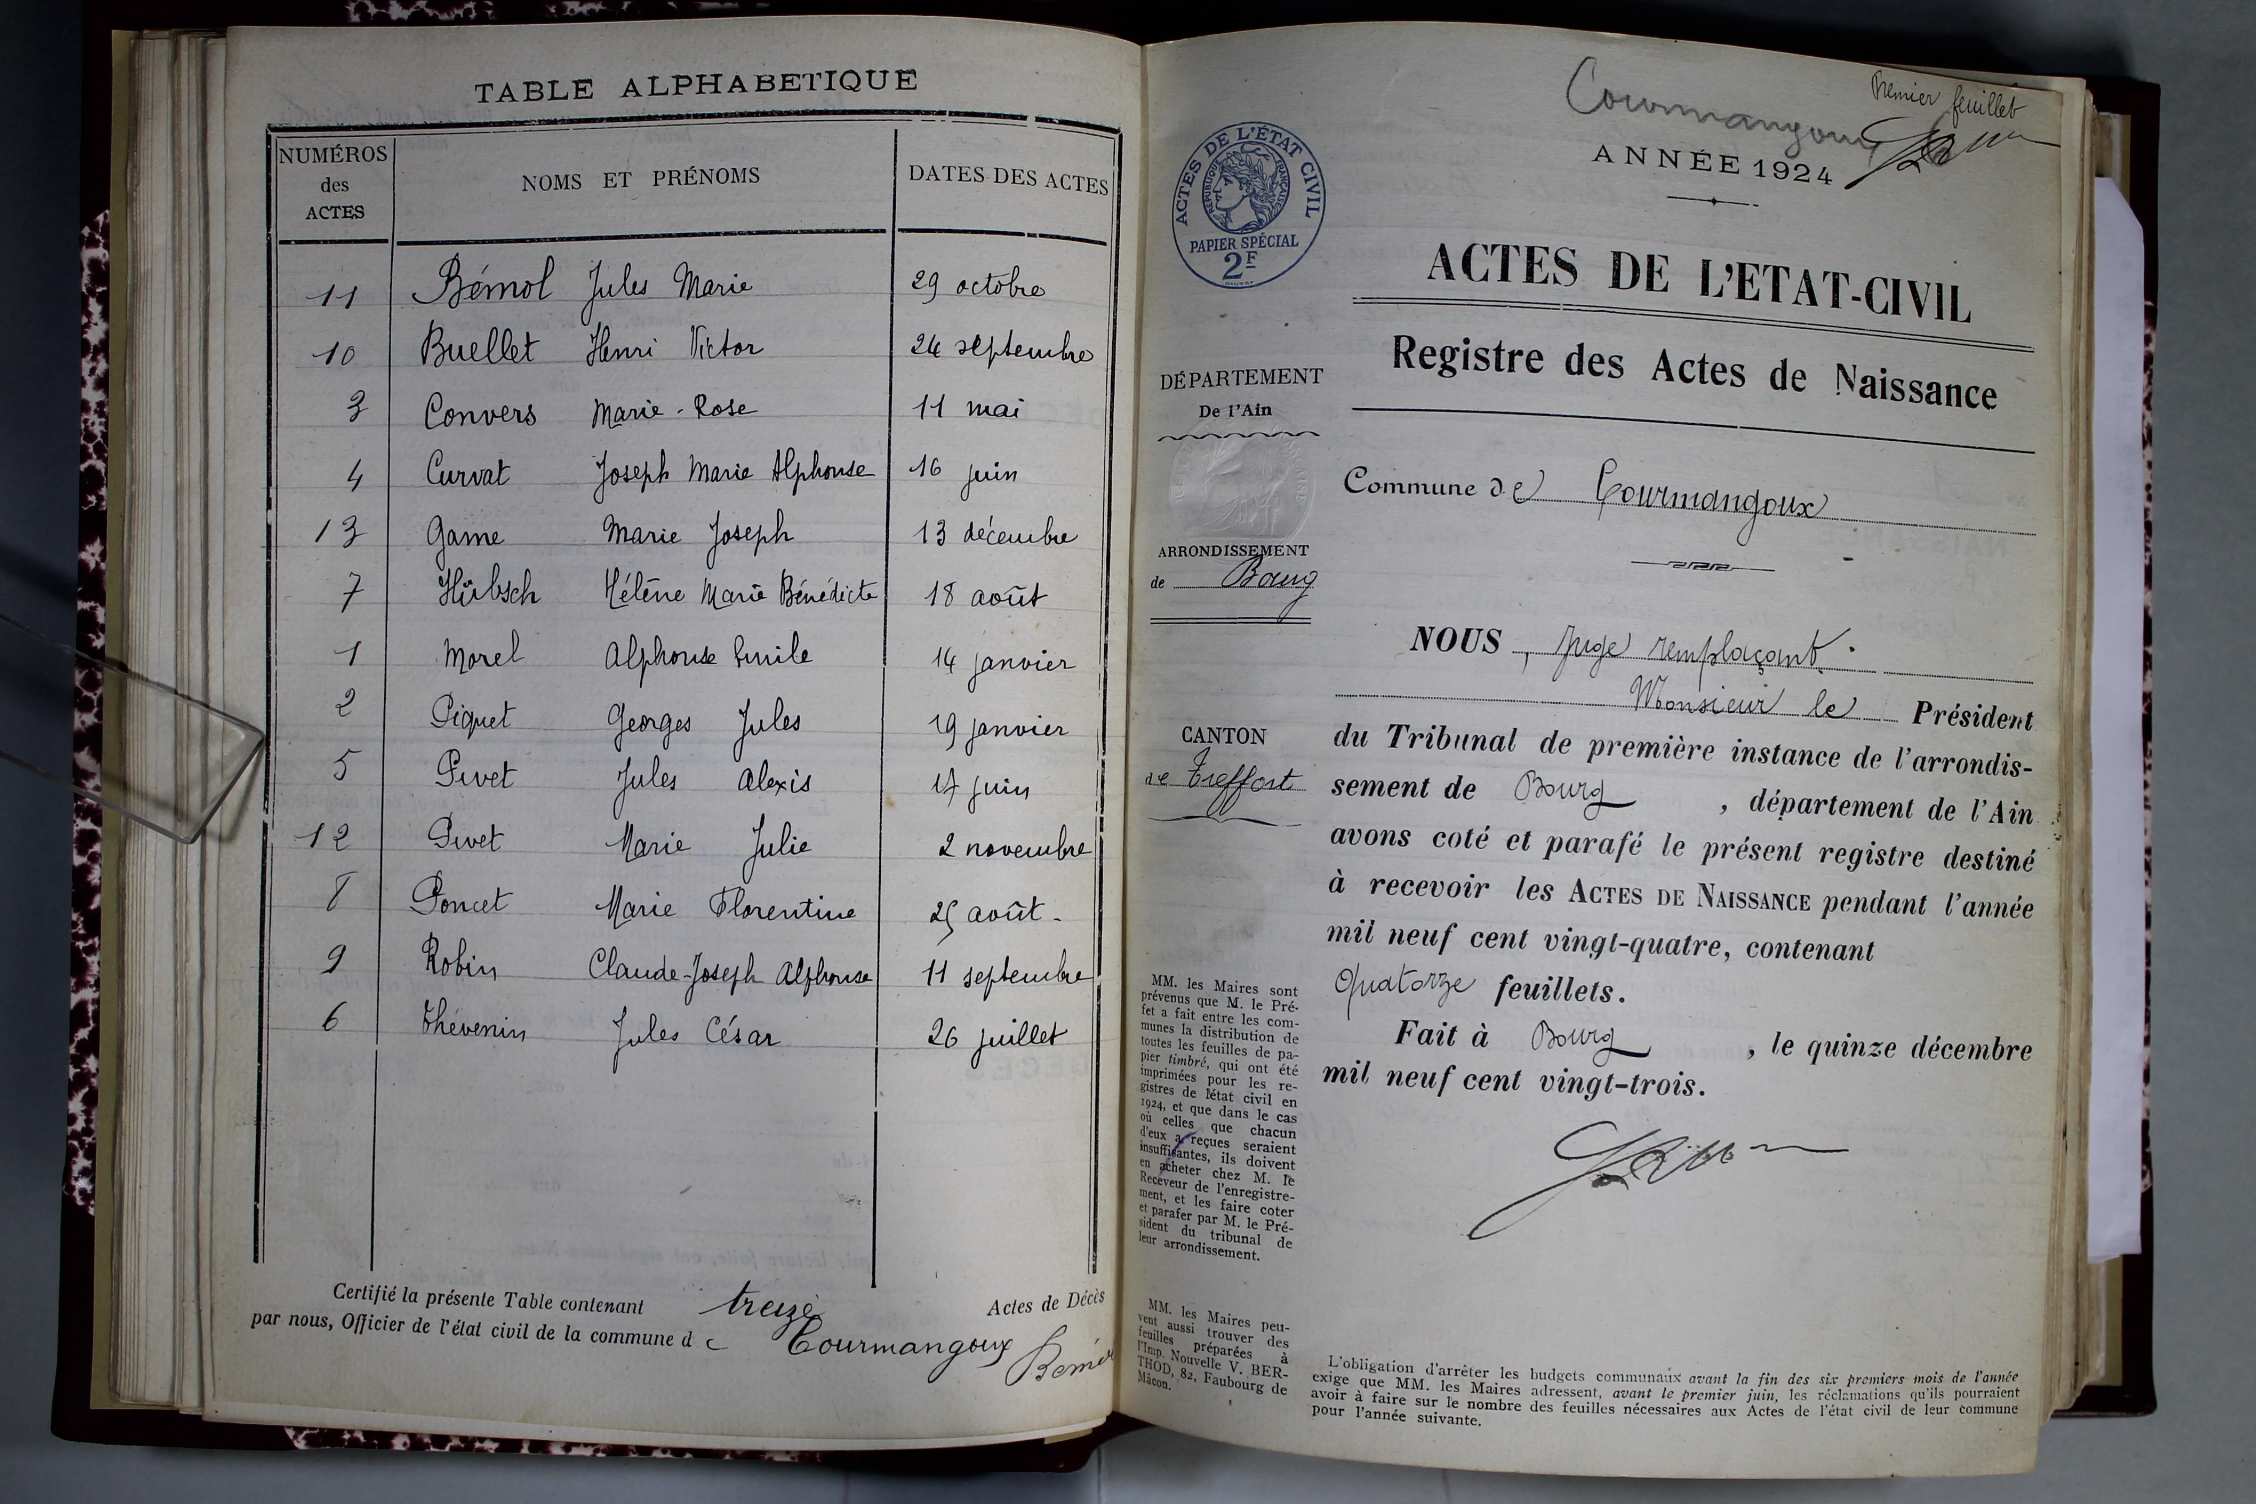 TABLE ALPHABETIQUE
NUMÉROS des ACTES
NOMS ET PRÉNOMS
DATES DES ACTES
11 Bémol Jules Marie 29 octobre
10 Buellet Henri Victor 24 septembre
3 Convers Marie-Rose 11 mai
4 Curvat Joseph Marie Alphonse 16 juin
13 Game Marie Joseph 13 décembre
7 Hübsch Hélène Marie Bénédicte 18 août
1 Morel Alphonse Emile 14 janvier
2 Piquet Georges Jules 19 janvier
5 Pivet Jules Alexis 17 juin
12 Pivet Marie Julie 2 novembre
8 Poncet Marie Florentine 25 août
9 Robin Claude-Joseph Alphonse 11 septembre
6 Thévenin Jules César 26 juillet
Certifié la présente Table contenant treize Actes de Décès
par nous, Officier de l'état civil de la commune de Courmangoux
Premier feuillet
Courmangoux
ANNÉE 1924
ACTES DE L'ÉTAT CIVIL
RÉPUBLIQUE FRANÇAISE
PAPIER SPÉCIAL
2F
ACTES DE L'ETAT-CIVIL
Registre des Actes de Naissance
DÉPARTEMENT
De l'Ain
Commune de Courmangoux
ARRONDISSEMENT
de Bourg
CANTON
de Treffort
NOUS, juge remplaçant
Monsieur le Président
du Tribunal de première instance de l'arrondis-
sement de Bourg, département de l'Ain
avons coté et parafé le présent registre destiné
à recevoir les ACTES DE NAISSANCE pendant l'année
mil neuf cent vingt-quatre, contenant
quatorze feuillets.
Fait à Bourg, le quinze décembre
mil neuf cent vingt-trois.
MM. les Maires sont
prévenus que M. le Pré-
fet a fait entre les com-
munes la distribution de
toutes les feuilles de pa-
pier timbré, qui ont été
imprimées pour les re-
gistres de l'état civil en
1924, et que dans le cas
où celles que chacun
d'eux a reçues seraient
insuffisantes, ils doivent
en acheter chez M. le
Receveur de l'enregistre-
ment, et les faire coter
et parafer par M. le Pré-
sident du tribunal de
leur arrondissement.
MM. les Maires peu-
vent aussi trouver des
feuilles préparées à
l'Imp. Nouvelle V. BER-
THOD, 82, Faubourg de
Mâcon.
L'obligation d'arrêter les budgets communaux avant la fin des six premiers mois de l'année
exige que MM. les Maires adressent, avant le premier juin, les réclamations qu'ils pourraient
avoir à faire sur le nombre des feuilles nécessaires aux Actes de l'état civil de leur commune
pour l'année suivante.